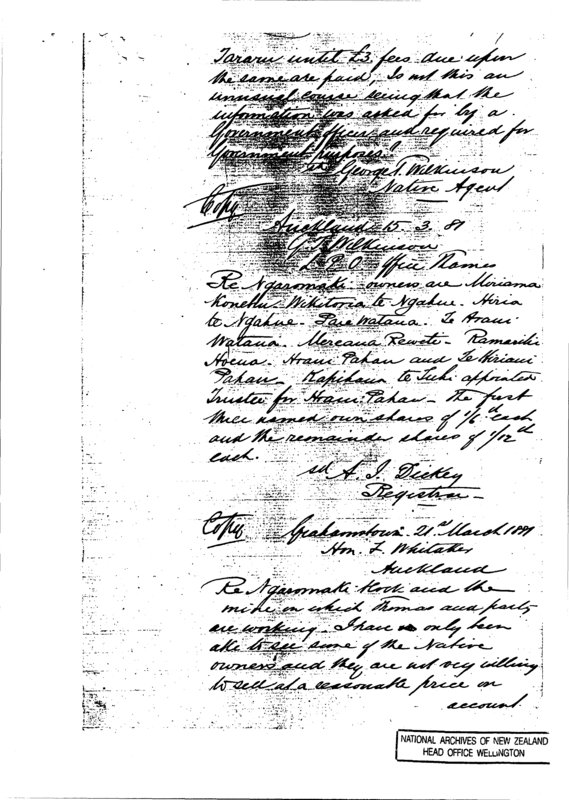 Tararu until £3 fees due upon
the same are paid, Is not this an
unusual course seeing that the
information was asked for by a
Government officer and required for
Government purposes?
sd George T. Wilkinson
Native Agent
Copy
Auckland 15. 3. 81
G. T. Wilkinson
L. P. O. Office Thames
Re Ngaromaki - owners are Miriama
Konehu - Wikitoria te Ngahue - Hiria
te Ngahue - Paie Watana. Te Arani
Watana. Mereana Rewete -
Hoena - Arani Pahau and Te Wiriami
Pahau - Rapihana te Tuhi appointed
Trustee for Arani Pahau - The first
three named own shares of 1/6th each
and the remainder shares of 1/12th
each.
sd A. J. Dickey
Registrar -
Copy
Grahamstown - 21st March 1881
Hon. F. Whitaker
Auckland
Re Ngaromaki block and the
mine in which Thomas and party
are working. I have only been
able to see some of the Native
owners and they are not very willing
to sell at a reasonable price on
account
NATIONAL ARCHIVES OF NEW ZEALAND
HEAD OFFICE WELLINGTON